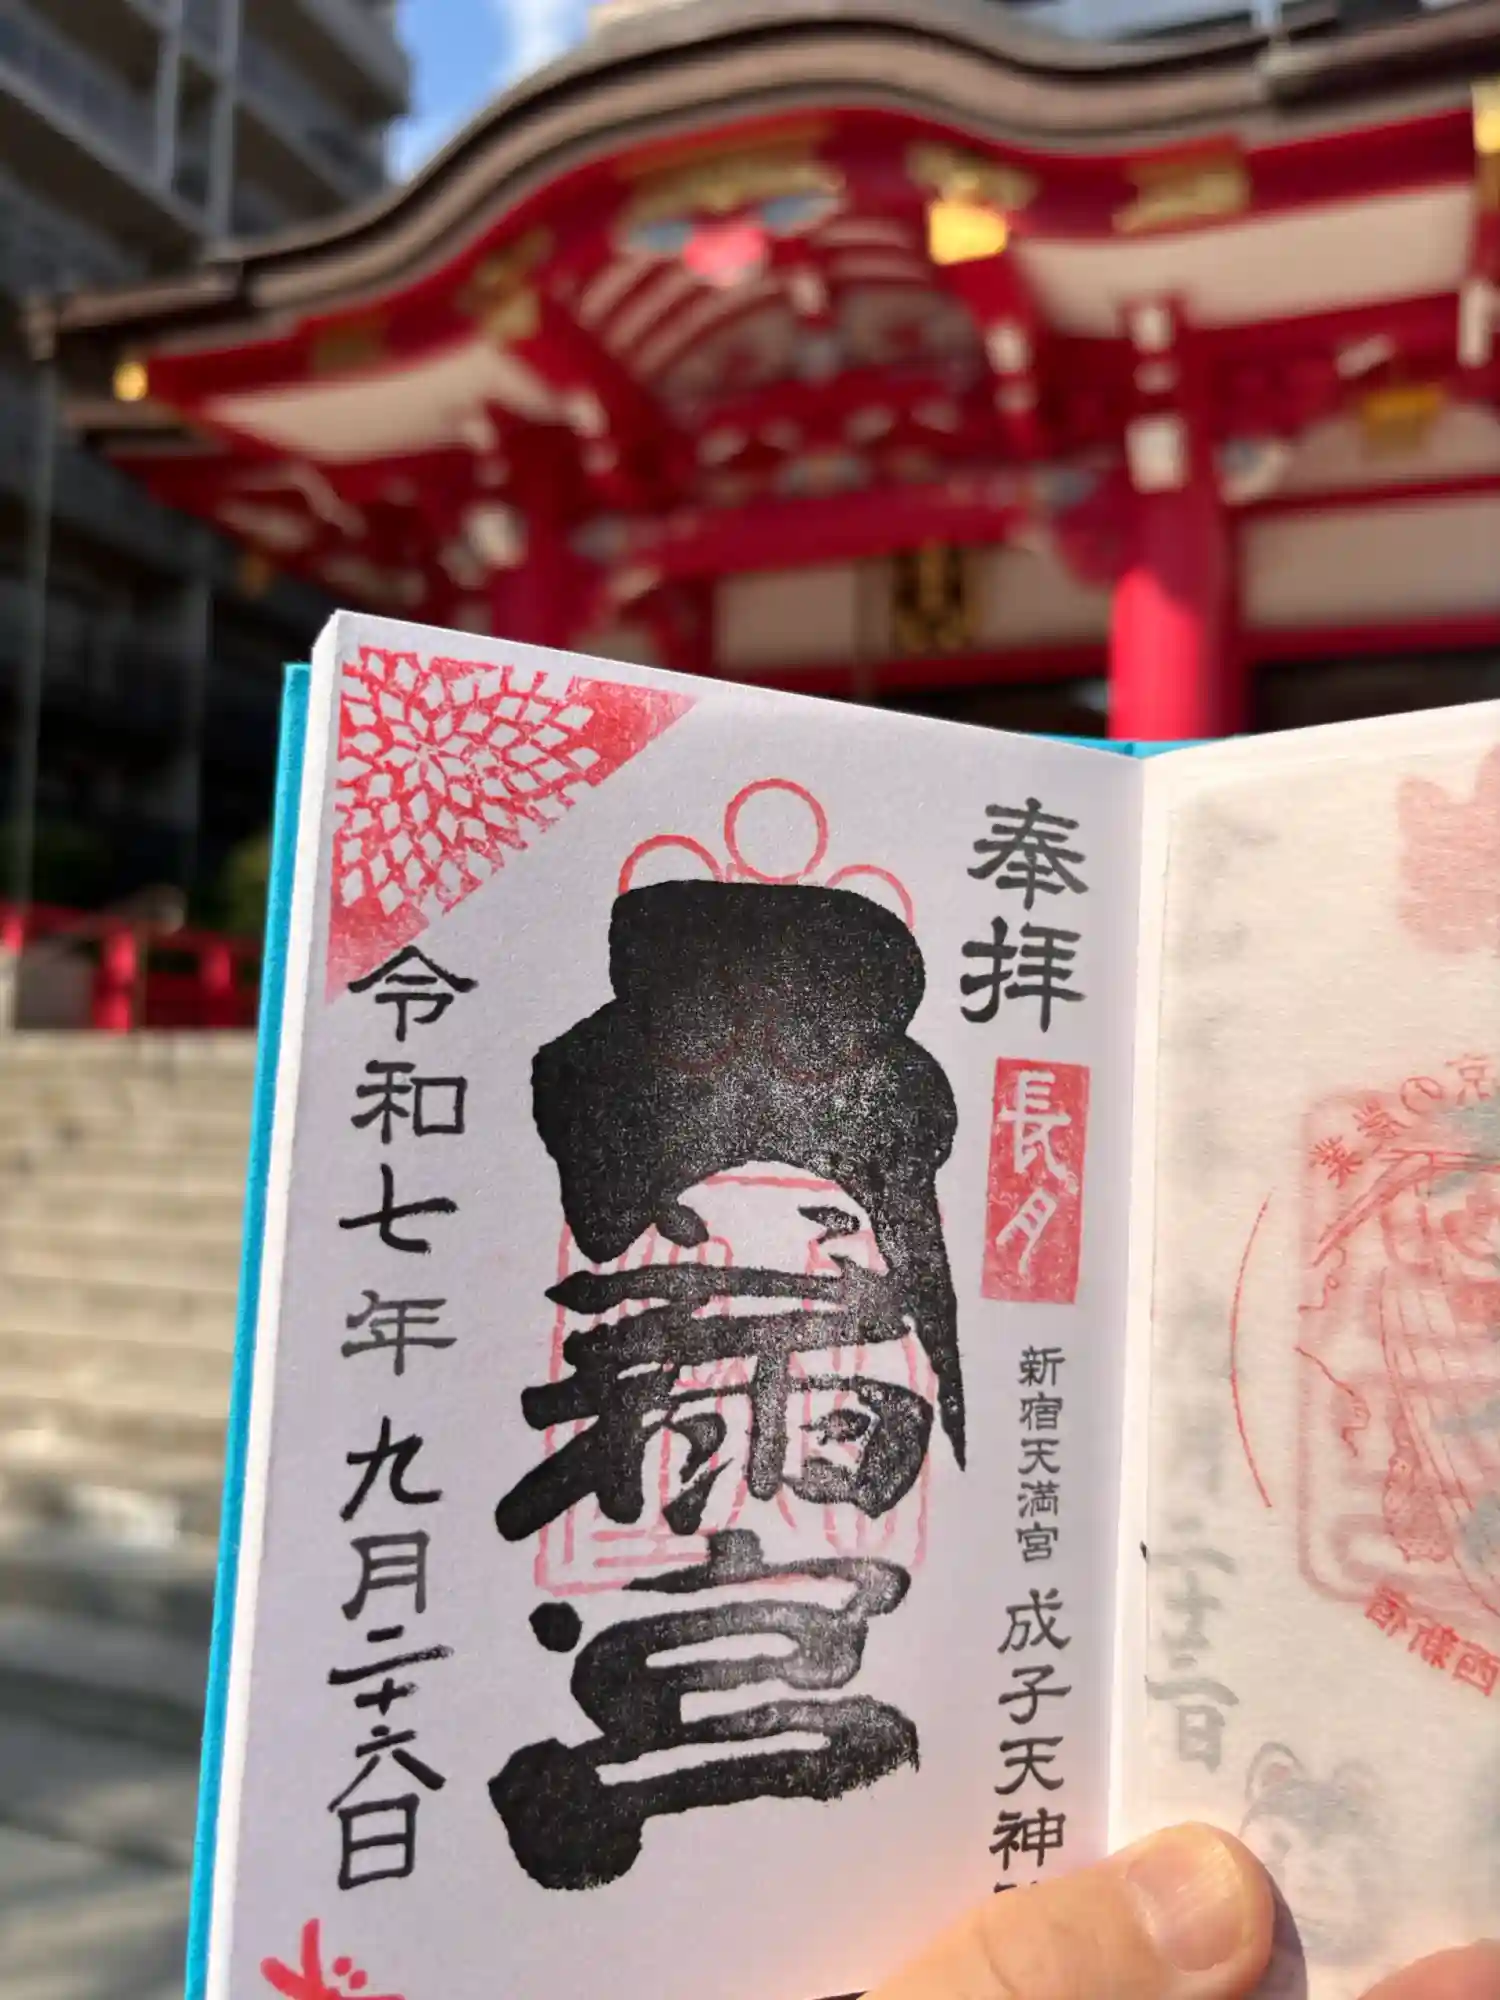 奉拝
長月
新宿天満宮 成子天神
天満宮
令和七年 九月二十六日
二十二日